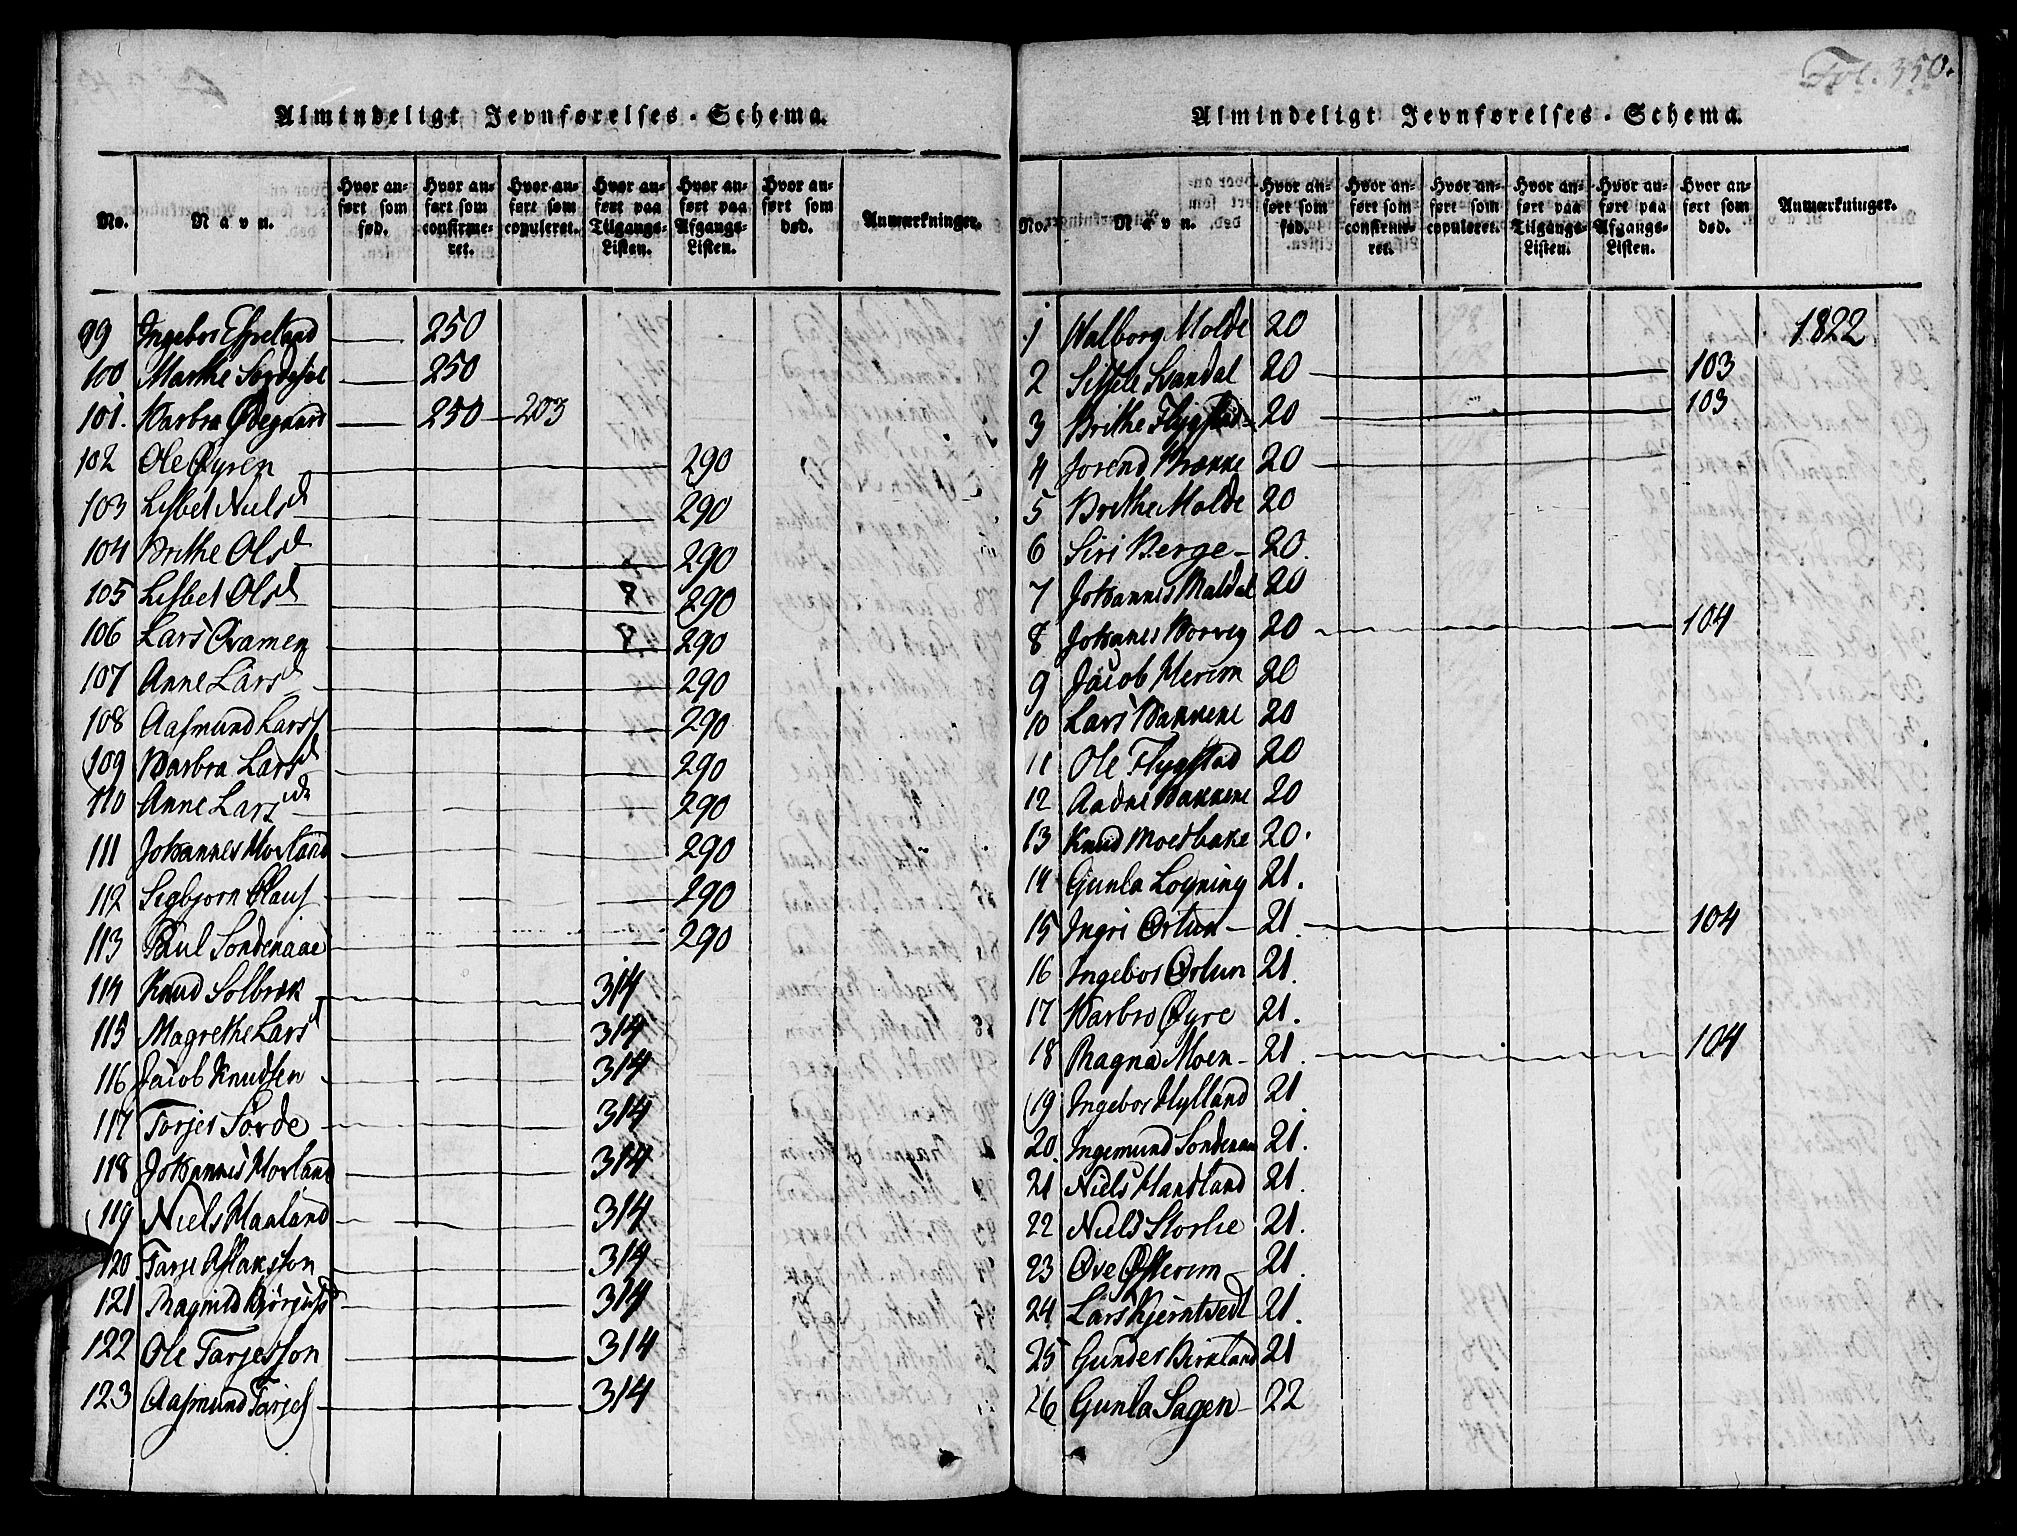 Almindeligt Jevnførelses-Schema.
No. Navn. Hvor anført som fød. Hvor anført som confirmeret. Hvor anført som copuleret. Hvor anført paa Tilgangs-Listen. Hvor anført paa Afgangs-Listen. Hvor anført som død. Anmærkninger.
99 Ingebor 250
100 Marthe 250
101. Barbra Ødegaard 250 203
102 Ole Øyren 290
103 Lisbet Nielsd 290
104 Brithe Olsd 290
105 Lisbet Olsd 290
106 Lars Qvamen 290
107 Anne Larsd 290
108 Aasmund Larss 290
109 Barbra Larsd 290
110 Anne Larsd 290
111 Johannes Horland 290
112 Sigbjorn Olaus 290
113 Paul Sondenaae 290
114 Knud Solbræk 314
115 Magrethe Larsd 314
116 Jacob Knudsen 314
117 Torjer Sørde 314
118 Johannes Horland 314
119 Niels Haaland 314
120. Tarje Aslaksson 314
121 Ragnild 314
122 Ole Tarjesson 314
123 Aasmund Tarjes 314
Fol. 350.
Almindeligt Jevnførelses-Schema.
No. Navn. Hvor anført som fød. Hvor anført som confirmeret. Hvor anført som copuleret. Hvor anført paa Tilgangs-Listen. Hvor anført paa Afgangs-Listen. Hvor anført som død. Anmærkninger.
1 Walborg Molde 20 1822
2 Sissele Svandal 20 103
3 Brithe Flygstad 20 103
4 Jorend Brække 20
5 Brithe Molde 20
6 Siri Berge 20.
7 Johannes Maldal 20
8 Johannes Horvey 20 104
9 Jacob Herim 20
10 Lars Bakkene 20
11 Ole Flygstad 20
12 Aadne Bakkene 20
13 Knud Moesbake 20.
14 Gunla Loyning 21.
15 Ingri Ørtun 21. 104
16 Ingebor Ørtun 21.
17 Barbro Øyre 21.
18 Ragna Moen 21. 104
19 Ingebor Hylland 21
20. Ingemund Sondenaa 21.
21 Niels Handland 21.
22 Niels Storlie 21.
23 Ove Østerim 21.
24 Lars Kjerntvedt 21.
25 Gunder Birkland 21
26 Gunla Sagen 22